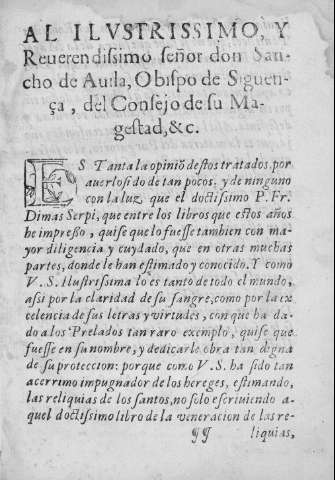 AL ILVSTRISSIMO, Y
Reuerendisimo señor don San-
cho de Auila, Obispo de Siguen-
ça, del Consejo de su Ma-
gestad, &c.
ES Tanta la opiniõ destos tratados, por
auerlos ido de tan pocos, y de ninguno
con la luz que el doctissimo P. Fr.
Dimas Serpi, que entre los libros que estos años
he impresso, quise que lo fuesse tambien con ma-
yor diligencia y cuydado, que en otras muchas
partes, donde le han estimado y conocido. Y como
V. S. Ilustrissima lo es tanto de todo el mundo,
assi por la claridad de su sangre, como por la ex
celencia de sus letras y virtudes, con que ha da-
do a los Prelados tan raro exemplo, quise que
fuesse en su nombre, y dedicarle obra tan digna
de su proteccion: porque como V. S. ha sido tan
acerrimo impugnador de los hereges, estimando,
las reliquias de los santos, no solo escriuiendo a-
quel doctissimo libro de la veneracion de las re-
¶¶ liquias,